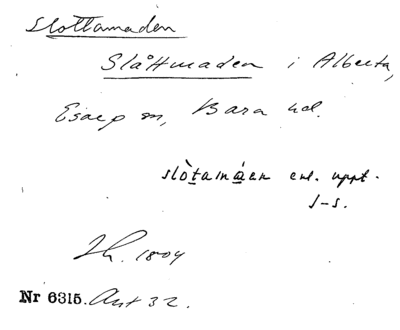 Slottamaden
Slåttmaden i Alberta,
Esarp sn, Bara hd.
slòtamáen enl. uppt.
J-s.
1804
Nr 6315. Ant 32.